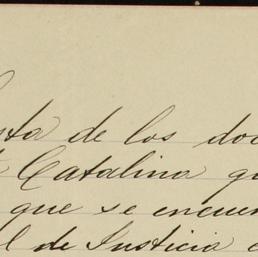 sta de los doc
Catalina qu
que se encuen
l de Justicia e